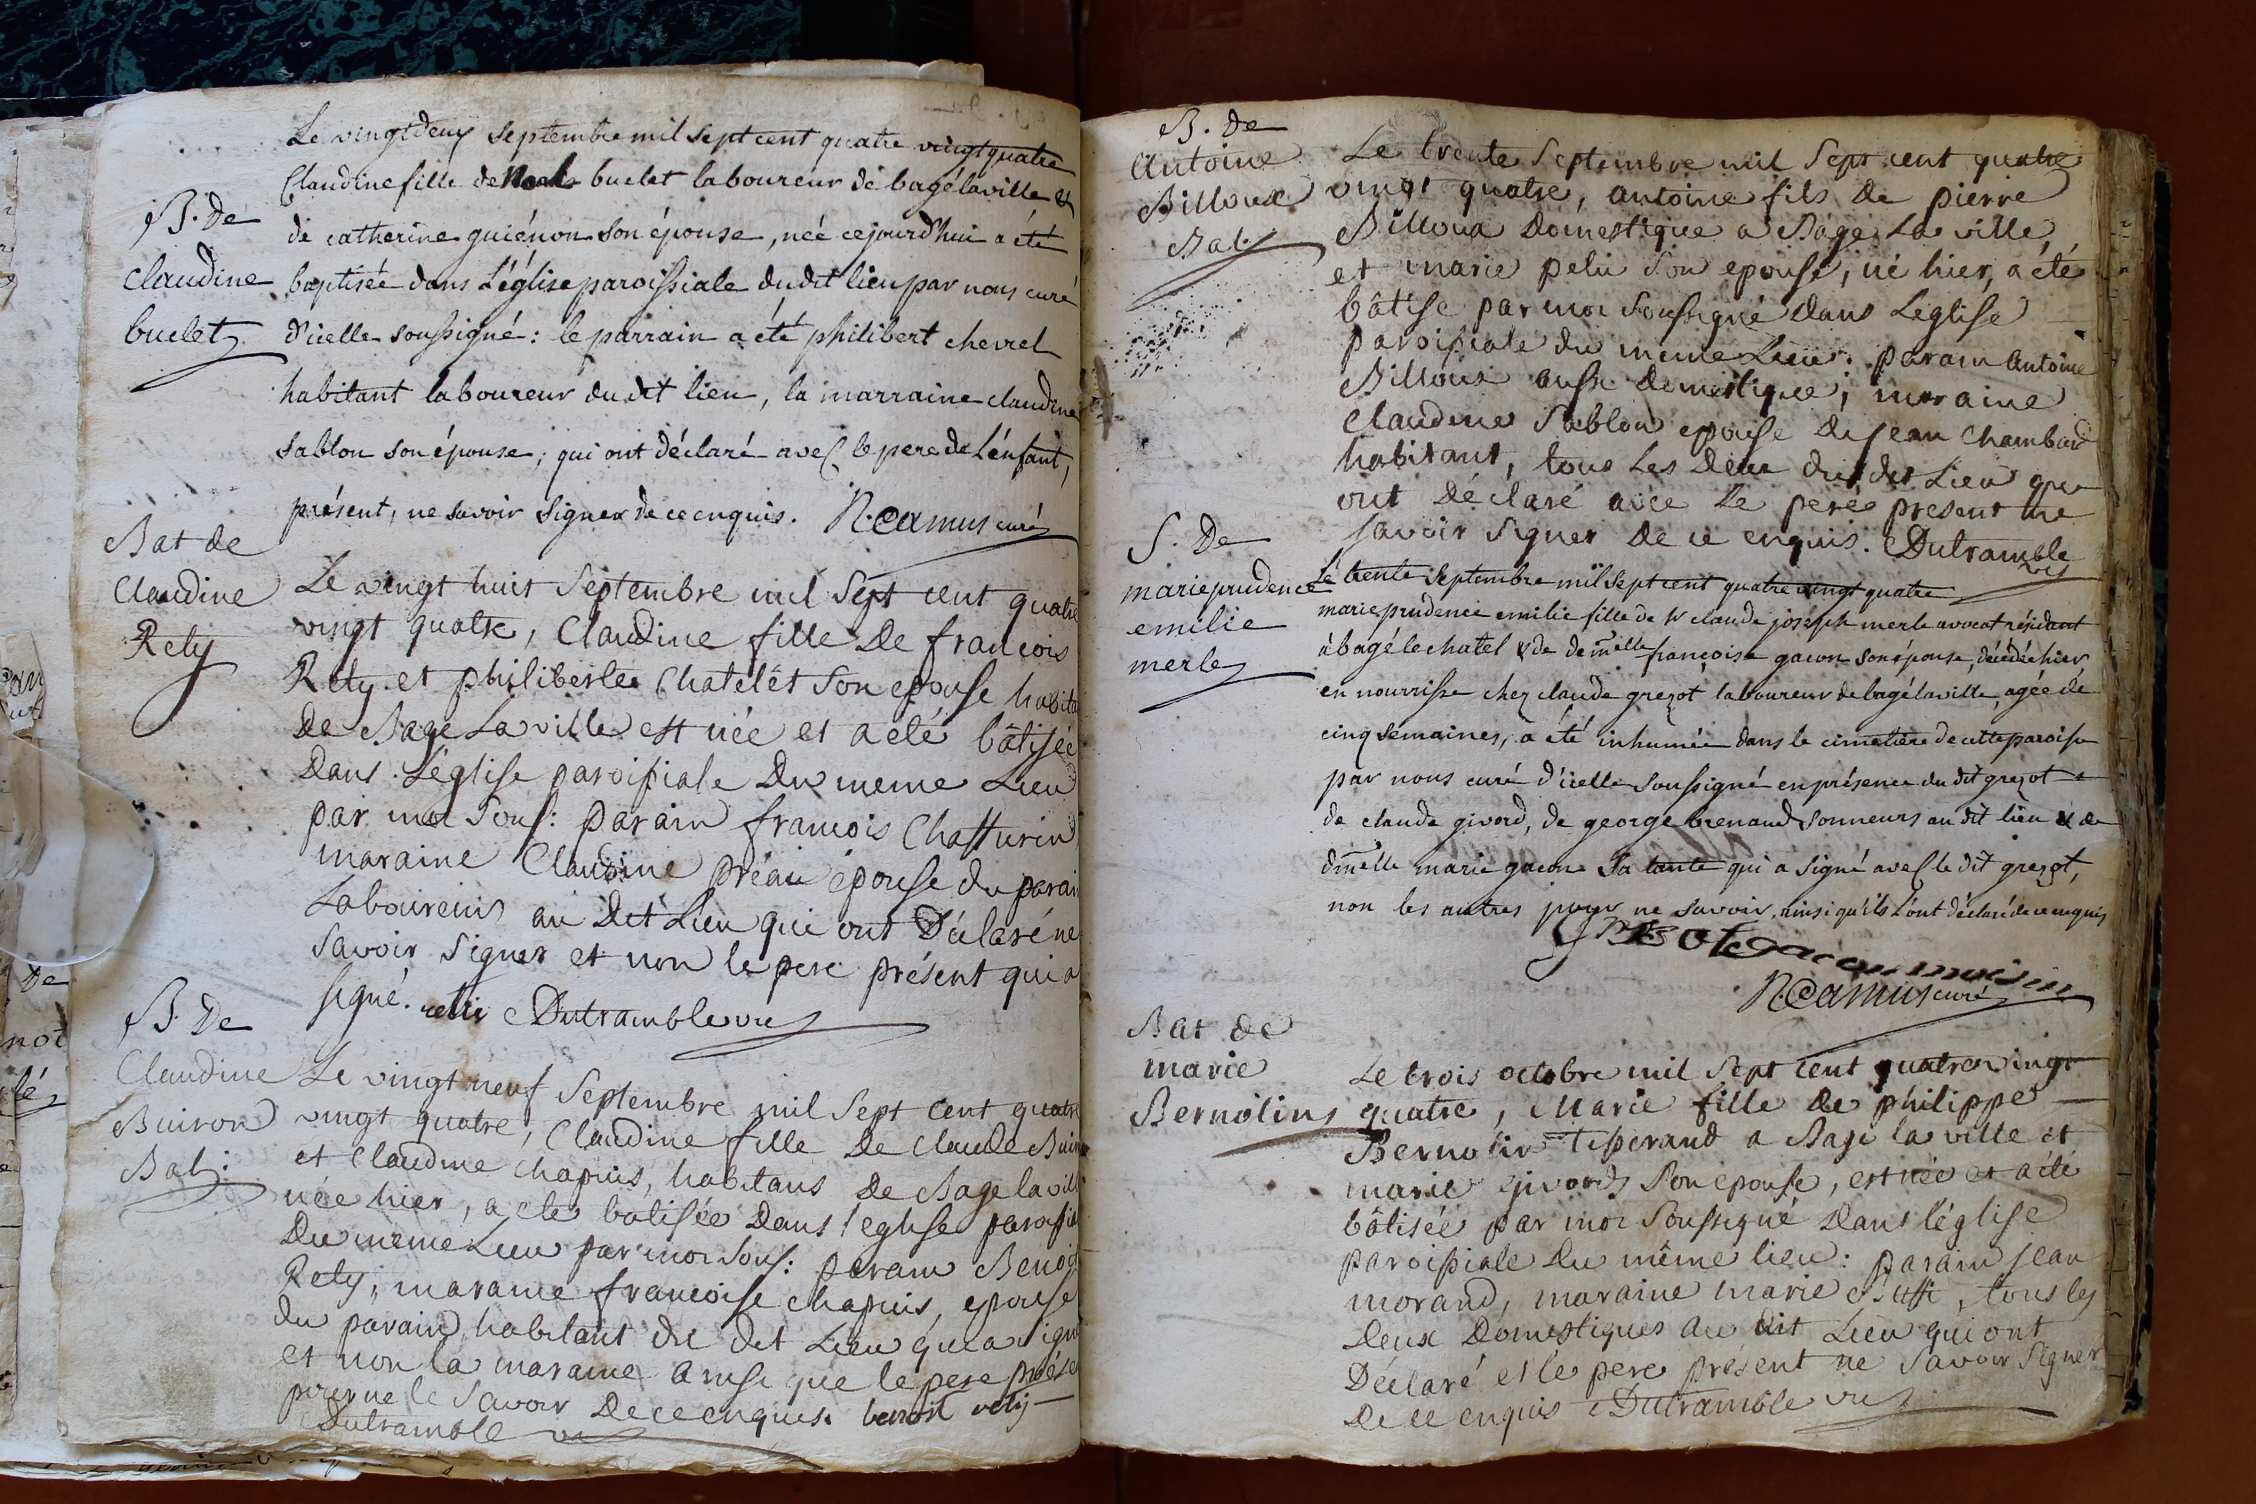 B. de
claudine
buclet
Le vingtdeux septembre mil sept cent quatre vingt quatre
Claudine fille de buclet laboureur de bagélaville et
de catherine guiénon son épouse, née cejourd'hui a été
baptisée dans L'église paroissiale dudit lieu par nous curé
d'icelle soussigné: le parrain a été philibert chevrel
habitant laboureur du dit lieu, la marraine claudine
sablon son épouse; qui ont déclaré avec le pere de L'énfant,
présent, ne savoir signer de ce enquis. N. Camus curé
Bat de
Claudine
Rety
Le vingt huit Septembre mil Sept cent quatre
vingt quatre, Claudine fille De françois
Rety et philiberte Chatelêt Son epouse habita
De Bagé La ville est née et a été bâtisée
Dans L'église paroissiale Du meme Lieu
par moi Sous: parain françois Chatturin
maraine Claudine préau épouse du parain
Laboureurs au Dit Lieu qui ont Déclaré ne
Savoir Signer et non le pere présent qui a
signé. retis Dutramble vic
B. De
Claudine
Buiron
Bat:
Le vingt neuf Septembre mil Sept Cent quatre
vingt quatre, Claudine fille De Claude Buir
et Claudine Chapuis, habitans De Bage la vill
née hier, a eté batisée Dans l'eglise paroissi
Du meme Lieu par moi Sous: parain Benoit
Rety, maraine françoise chapuis, epouse
du parain habitant du dit Lieu qui a signé
et non la maraine ainsi que le pere prése
pour ne le Savoir De ce enquis. benoit rety
Dutramble vic
B. De
Antoine
Billoux
Bat.
Le trente Septembre mil Sept cent quatre
vingt quatre, antoine fils De pierre
Billoux Domestique a Bagé La ville,
et marie pelu Son epouse, né hier, a été
bâtisé par moi Soussigné Dans L'église
paroissiale du meme Lieu: parain Antoine
Billoux aussi Domestique; maraine
Claudine Sablon epouse De jean Chambard
habitant, tous Les Deux du dit Lieu qui
ont Déclaré avec Le pere present ne
savoir Signer De ce enquis. Dutramble
vic
S. De
marie prudence
emilie
merle
Le trente septembre mil sept cent quatre vingt quatre
marie prudence emilie fille de Mr claude joseph merle avocat résidant
à bagé le chatel & de demlle françoise gacon son épouse, décédée hier
en nourrisse chez claude grezot laboureur de bagélaville, agée de
cinq semaines, a été inhumée dans le cimetière de cette paroisse
par nous curé d'icelle soussigné en présence du dit grezot &
de claude givord, de george brenaud sonneurs au dit lieu & de
dmelle marie gacon sa tante qui a signé avec le dit grezot,
non les autres pour ne savoir, ainsi qu'ils L'ont déclaré de ce enquis
N. Camus curé
Bat de
marie
Bernolins
Le trois octobre mil Sept Cent quatre vingt
quatre, Marie fille De philippe
Bernolin Tisserand a Bagé la ville et
marie givord Son epouse, est née et a été
bâtisée par moi Soussigné Dans l'église
paroissiale Du même lieu: parain jean
morand, maraine marie Buffi, tous les
Deux Domestiques au dit Lieu qui ont
Déclaré et le pere présent ne Savoir Signer
De ce enquis Dutramble vic